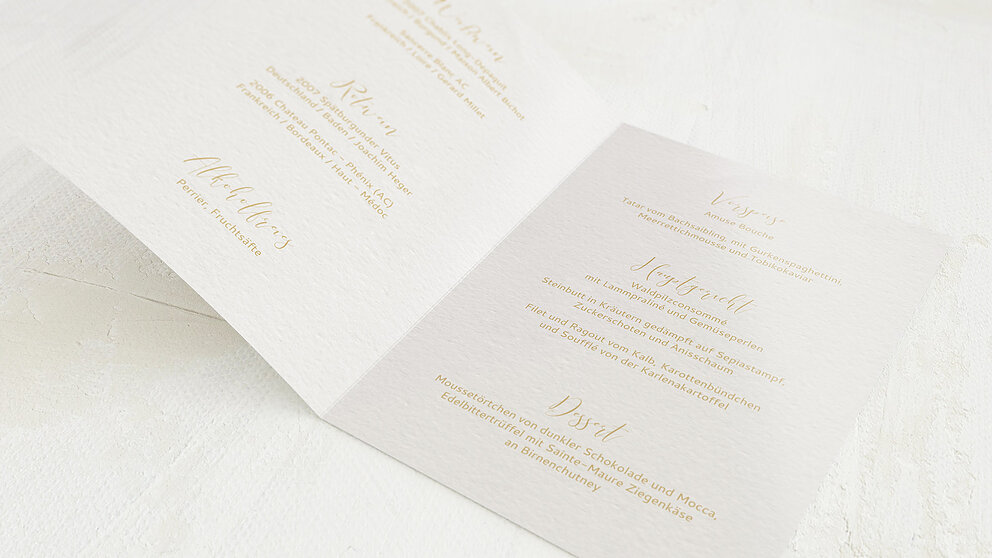 Weißwein
2007 Chablis Long-Depaquit
Frankreich / Burgund / Maison Albert Bichot
Sancerre Blanc AC
Frankreich / Loire / Gerard Millet
Rotwein
2007 Spätburgunder Vitus
Deutschland / Baden / Joachim Heger
2006 Chateau Pontac – Phénix (AC)
Frankreich / Bordeaux / Haut – Médoc
Alkoholfreies
Perrier, Fruchtsäfte
Vorspeise
Amuse Bouche
Tatar vom Bachsaibling, mit Gurkeaspaghettini,
Meerrettichmousse und Tobikokaviar
Hauptgericht
Waldpilzconsommé
mit Lammpraliné und Gemüseperlen
Steinbutt in Kräutern gedämpft auf Sepiastampf,
Zuckerschoten und Anisschaum
Filet und Ragout vom Kalb, Karottenbündchen
und Soufflé von der Karlenakartoffel
Dessert
Moussetörtchen von dunkler Schokolade und Mocca,
Edelbittertrüffel mit Sainte-Maure Ziegenkäse
an Birnenchutney